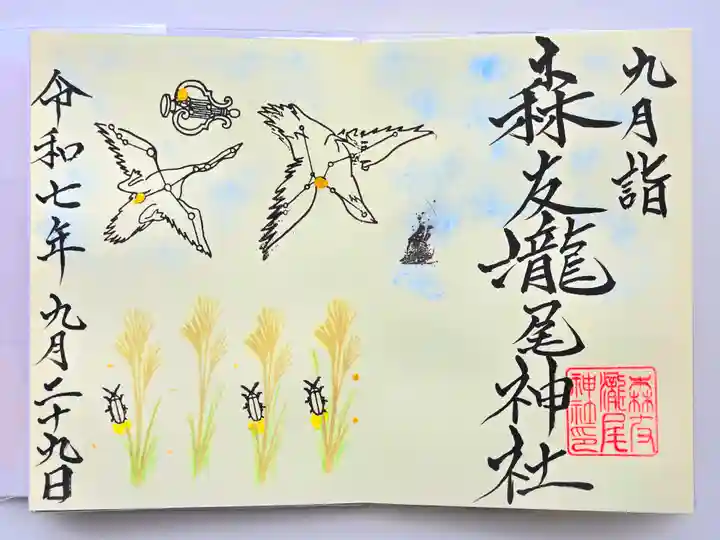 九月詣
森友瀧尾神社
森友
瀧尾
神社印
令和七年 九月二十九日